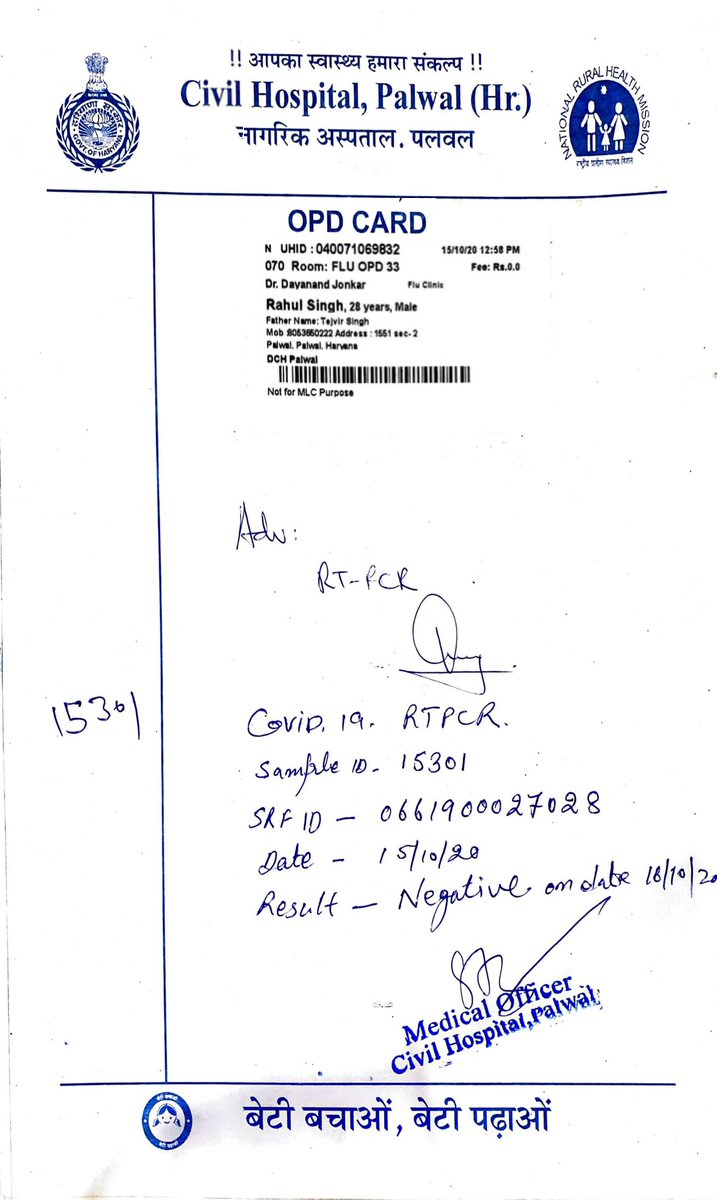 !! आपका स्वास्थ्य हमारा संकल्प !!
Civil Hospital, Palwal (Hr.)
नागरिक अस्पताल. पलवल
हरियाणा सरकार
GOVT. OF HARYANA
NATIONAL RURAL HEALTH MISSION
राष्ट्रीय ग्रामीण स्वास्थ्य मिशन
OPD CARD
N UHID : 040071069832 15/10/20 12:58 PM
070 Room: FLU OPD 33 Fee: Rs.0.0
Dr. Dayanand Jonkar Flu Clinic
Rahul Singh, 28 years, Male
Father Name: Tejvir Singh
Mob :8053650222 Address : 1551 sec-2
Palwal, Palwal, Haryana
DCH Palwal
Not for MLC Purpose
Adv:
RT-PCR
15301
Covid. 19. RTPCR.
Sample ID- 15301
SRF ID – 0661900027028
Date - 15/10/20
Result – Negative on date 16/10/20
Medical Officer
Civil Hospital, Palwal
बेटी बचाओं, बेटी पढ़ाओं
बेटी बचाओ
बेटी पढ़ाओ